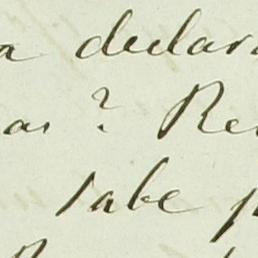 a declar
as? Re
take p